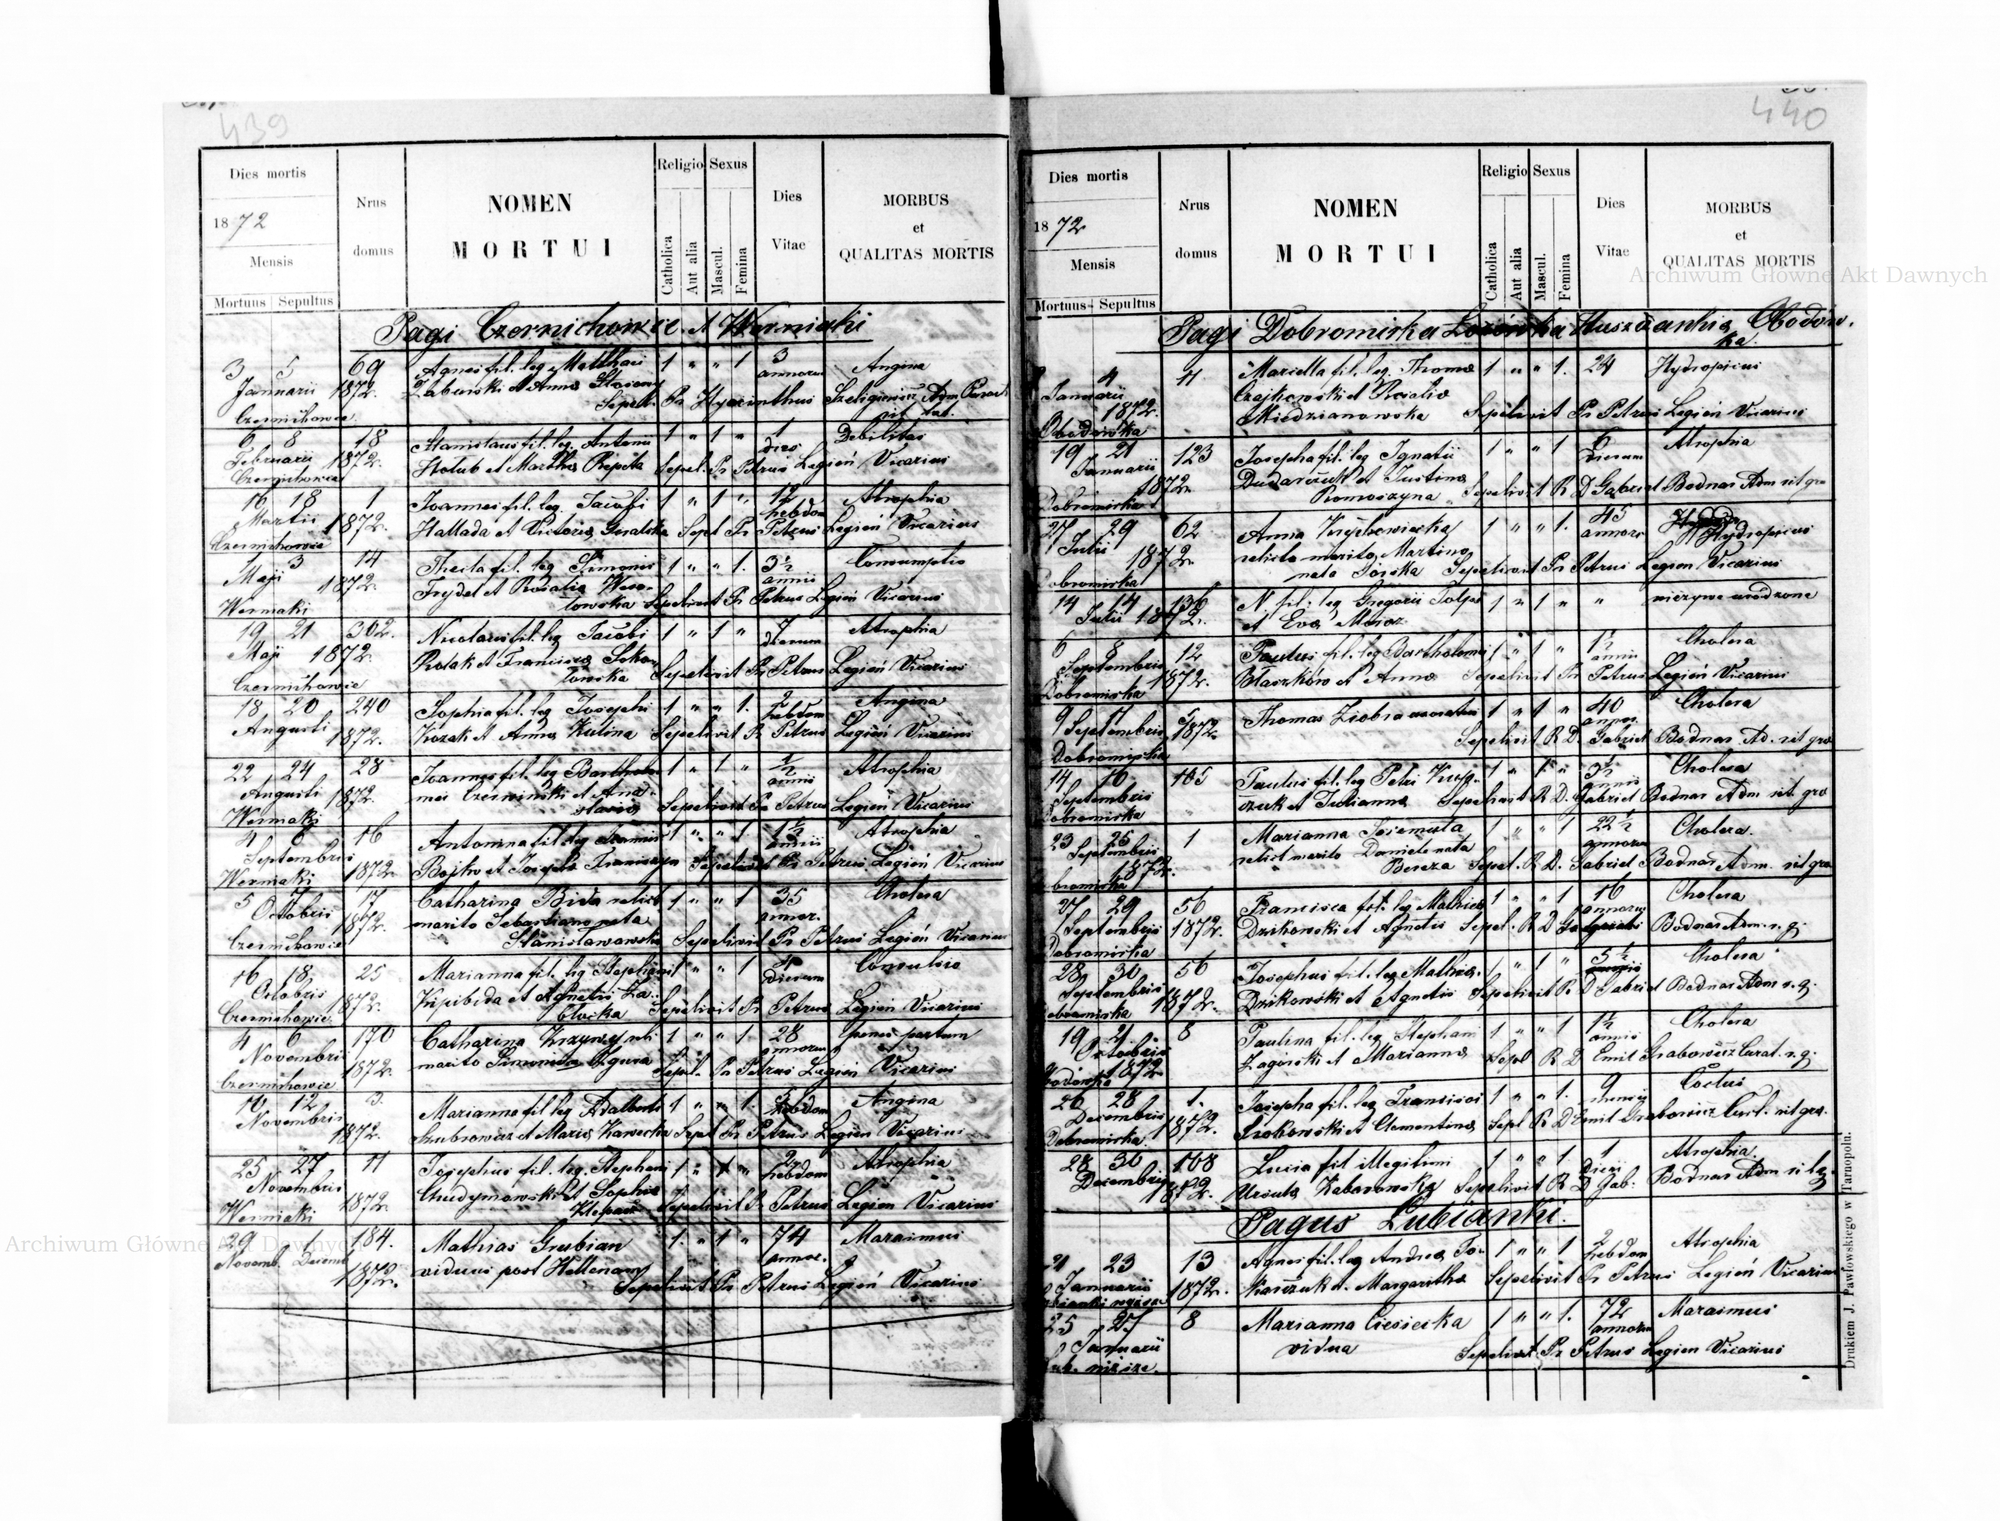 439
Dies mortis
1872
Mensis
Mortuus Sepultus
Nrus
domus
NOMEN
MORTUI
Religio
Catholica
Aut alia
Sexus
Mascul.
Femina
Dies
Vitae
MORBUS
et
QUALITAS MORTIS
Pagi Czernichowce et Werniaki
3 5 69 Agnes fil. leg. Matthaei 1 " " 1 3 Angina
Januarii 1872. et Anna annorum
Czernichowce Sepel. Pr Hyacinthus Adm.
6 8 18 Stanislaus fil. leg. Antonii 1 " 1 " 1 Debilitas
Februarii 1872. Holub et Martha Repeta dies
Czernichowce Sepel. Pr Petrus Legień Vicarius
16 18 1 Joannes fil. leg. Jacobi 1 " 1 " 12 Atrophia
Martii 1872. Hallada et Victoria hebdom
Czernichowce Sepel Pr Petrus Legień Vicarius
3 14 Thecla fil. leg. Simonis 1 " " 1. 3½ Consumptio
Maji 1872. Frydel et Rosalia Weso- annis
Werniaki łowska Sepelivit Pr Petrus Legień Vicarius
19 21 302. Nicolaus fil. leg. Jacobi 1 " 1 " 7 Atrophia
Maji 1872. Polak et Francisca Soko- dierum
Czernichowce łowska Sepelivit Pr Petrus Legień Vicarius
18 20 240 Sophia fil. leg. Josephi 1 " " 1. 2 Angina
Augusti 1872. Kozak et Anna Kulina hebdom
Sepelivit Pr Petrus Legień Vicarius
22 24 28 Joannes fil. leg. Bartholo- 1 " 1 " ½ Atrophia
Augusti 1872. mei Czerwiński et Ana- annis
Werniaki stasia Sepelivit Pr Petrus Legień Vicarius
4 6 16 Antonina fil leg. 1 " " 1 1½ Atrophia
Septembris 1872. Bojko et Josepha annis
Werniaki Sepelivit Pr Petrus Legień Vicarius
5 7 17 Catharina Bida relict 1 " " 1 35 Cholera
Octobris 1872. marito Sebastiano nata annor.
Czernichowce Stanisławowska Sepelivit Pr Petrus Legień Vicarius
16 18 25 Marianna fil. leg. Stephani 1 " " 1 Convulsio
Octobris 1872. et Agnetis Za- dierum
Czernichowce Sepelivit Pr Petrus Legień Vicarius
4 6 170 Catharina 1 " " 1 28 penes partum
Novembri 1872. marito Simonis annorum
Czernichowce Sepel. Pr Petrus Legień Vicarius
10 12 3. Marianna fil leg. Adalberti 1 " " 1. Angina
Novembris 1872. et Maria Kawecka hebdom
Sepel Pr Petrus Legień Vicarius
25 27 11 Josephus fil. leg. Stephani 1 " 1 " 2 Atrophia
Novembris 1872. Chudymowski et Sophia hebdom
Werniaki Sepelivit Pr Petrus Legień Vicarius
29 1 184. Mathias Grubian 1. " 1 " 74 Marasmus
Novemb. Decem 1872. viduus post Hellenam annor.
Sepelivit Pr Petrus Legień Vicarius
440
Dies mortis
1872
Mensis
Mortuus Sepultus
Nrus
domus
NOMEN
MORTUI
Religio
Catholica
Aut alia
Sexus
Mascul.
Femina
Dies
Vitae
MORBUS
et
QUALITAS MORTIS
Pagi Dobromirka Łozówka Huszczanki Obodów-
ka.
4 11 Mariella fil. leg. Thoma 1 " " 1. 24 Hydropicus
Januarii 1872. Czajkowski et Rosalia
Obodówka Miedzianowska Sepelivit Pr Petrus Legień Vicarius
19 21 123 Josepha fil. leg. Ignatii 1 " " 1 6 Atrophia
Januarii 1872. Dudarczuk et Justina dierum
Dobromirka Romoszyna Sepelivit R D Gabriel Bodnar Adm rit gr
27 29 62 Anna 1 " " 1. 45 Hydropicus
Julii 1872. relicta marito Martino annor
Dobromirka nata Górska Sepelivit Pr Petrus Legień Vicarius
14 14 136 N. fil. leg Gregorii 1 " 1 " " nieżywe urodzone
Julii 1872. et Eva Moroz
6 8 12 Paulus fil. leg Bartholomei 1 " 1 " 1½ Cholera
Septembris 1872. Błaszków et Anna annis
Dobromirka Sepelivit Pr Petrus Legień Vicarius
9 11 5 Thomas Ziobra 1 " 1 " 40 Cholera
Septembris 1872. annor.
Dobromirka Sepelivit R D. Gabriel Bodnar Ad. rit gr
14 16 185 Paulus fil. leg Petri 1 " 1 " 3½ Cholera
Septembris czuk et Julianna annis
Dobromirka Sepelivit R D. Gabriel Bodnar Adm rit gr
23 25 1 Marianna 1 " " 1 22½ Cholera.
Septembris 1872. relict marito Daniele nata annorum
Bereza Sepel. R D. Gabriel Bodnar Adm. rit gr
27 29 56 Francisca fil. leg Mathias 1 " " 1 16 Cholera
Septembris 1872. Dzikowski et Agnetis annorum
Dobromirka Sepel. R D Gabriel Bodnar Adm r. g.
28 30 56 Josephus fil. leg Mathias 1 " 1 " 5½ Cholera
Septembris 1872. Dzikowski et Agnetis annis
Dobromirka Sepelivit R D Gabriel Bodnar Adm r. g.
19 21 8 Paulina fil. leg Stephani 1 " " 1 1½ Cholera
Octobris 1872 Zagórski et Marianna annis
Obodówka Sepel R D Emil Grabowicz Curat. r. g.
26 28 1. Josepha fil. leg Francisci 1 " " 1. 9 Coctus
Decembris 1872. Grabowski et Clementina mensis
Dobromirka Sepel R D Emil Grabowicz Curt. rit gr.
28 30 168 Lucia fil illegitimi 1 " " 1. 1 Atrophia.
Decembris 1872. Ursula Kabarowska diei
Sepelivit R D Gab: Bodnar Adm rit g.
Pagus Lubianki.
21 23 13 Agnes fil. leg Andrea 1 " " 1 2 Atrophia
Januarii 1872. et Margaritha hebdom
Lubianki wyższe Sepelivit Pr Petrus Legień Vicarius
25 27 8 Marianna Ciesielska 1 " " 1. 72 Marasmus
Januarii vidua annorum
Lub. niższe. Sepelivit Pr Petrus Legień Vicarius
Drukiem J. Pawłowskiego w Tarnopolu.
Archiwum Główne Akt Dawnych
Archiwum Główne Akt Dawnych